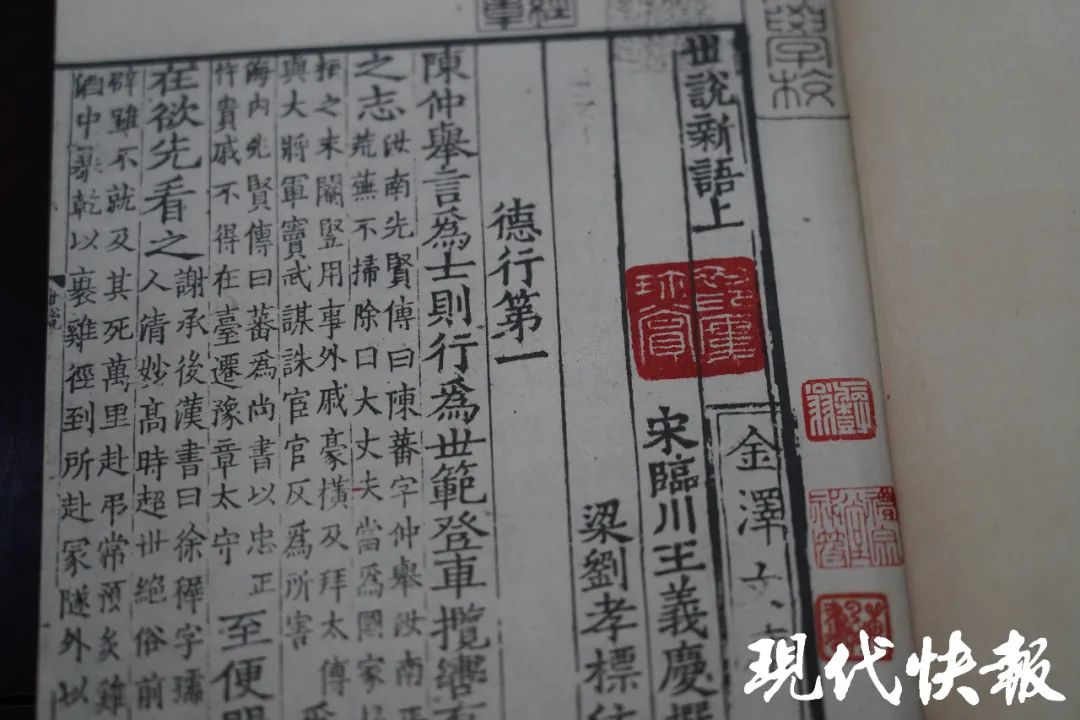 學校
世說新語上
金澤文
宋臨川王義慶撰
梁劉孝標
德行第一
陳仲舉言爲士則行爲世範登車攬轡有
之志
汝南先賢傳曰陳蕃字仲舉汝南
荒蕪不掃除曰大丈夫當爲國家
桓之末閹豎用事外戚豪橫及拜太傅
與大將軍竇武謀誅宦官反爲所害
海内先賢傳曰蕃爲尚書以忠正
忤貴戚不得在臺遷豫章太守
至便問
在欲先看之
謝承後漢書曰徐穉字孺
人清妙高時超世絕俗前
辟雖不就及其死萬里赴弔常預炙雞
酒中暴乾以裹雞徑到所赴冢隧外以
現代快報